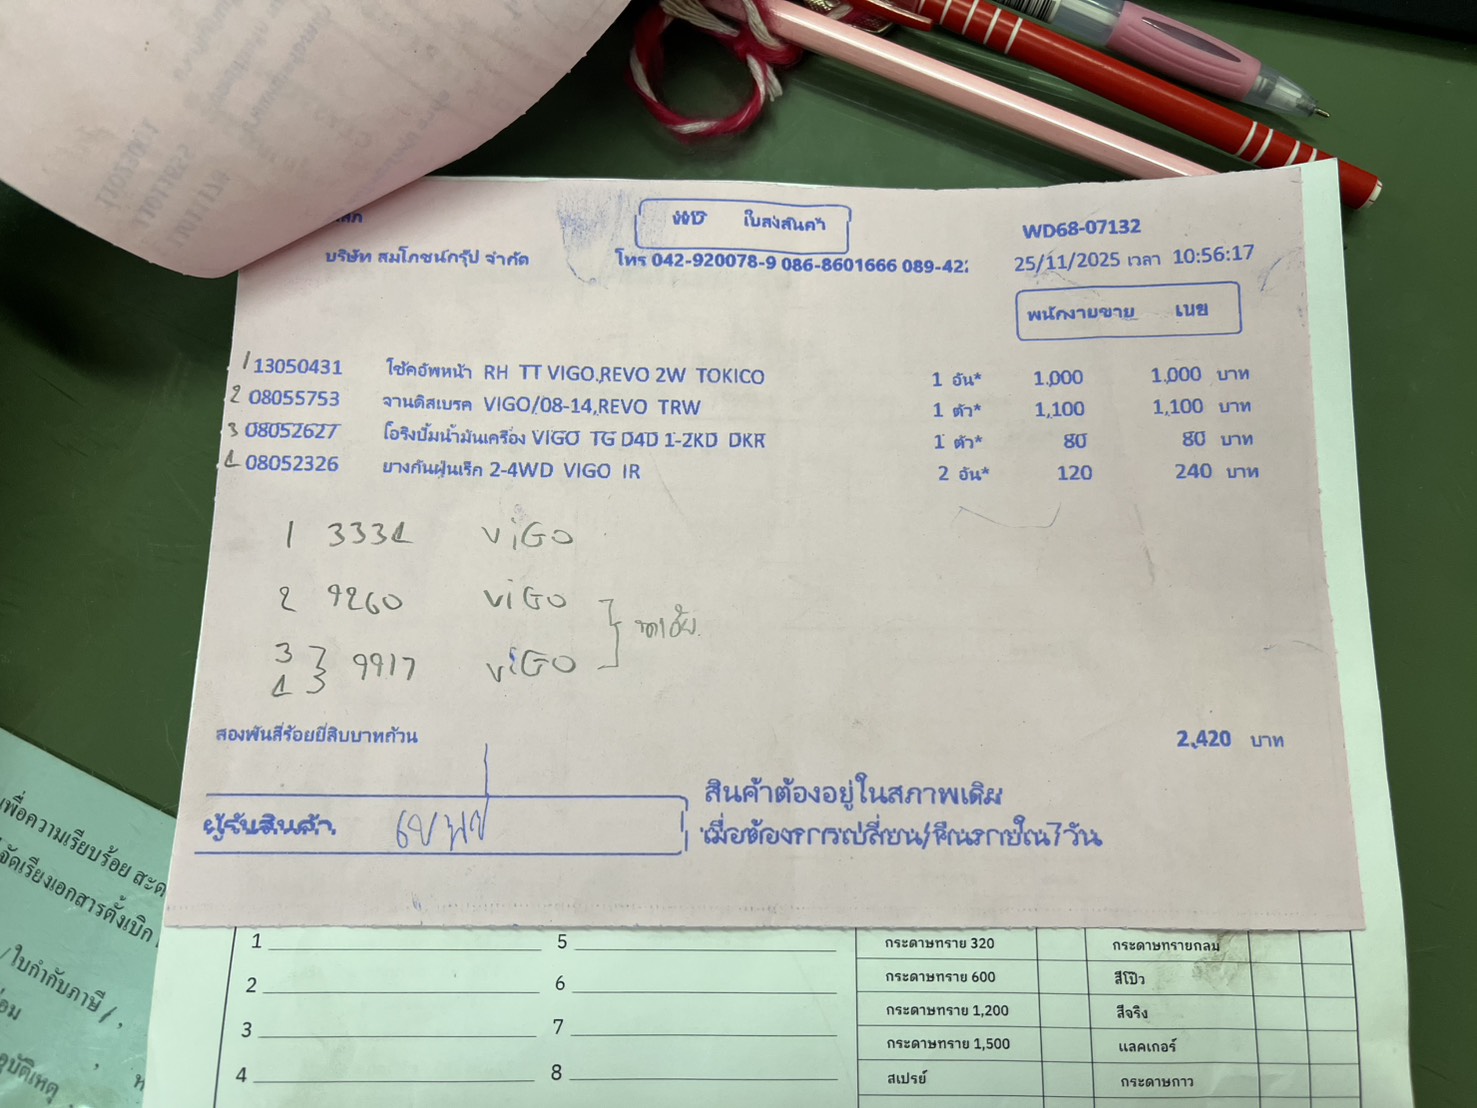 WD ใบส่งสินค้า
WD68-07132
บริษัท สมโภชน์กรุ๊ป จำกัด
โทร 042-920078-9 086-8601666 089-422
25/11/2025 เวลา 10:56:17
พนักงานขาย เนย
1 13050431 โช้คอัพหน้า RH TT VIGO,REVO 2W TOKICO 1 อัน* 1,000 1,000 บาท
2 08055753 จานดิสเบรค VIGO/08-14,REVO TRW 1 ตัว* 1,100 1,100 บาท
3 08052627 โอริงปั๊มน้ำมันเครื่อง VIGO TG D4D 1-2KD DKR 1 ตัว* 80 80 บาท
4 08052326 ยางกันฝุ่นเร็ก 2-4WD VIGO IR 2 อัน* 120 240 บาท
1 3334 ViGO
2 9260 ViGO
3
4 9917 ViGO
สองพันสี่ร้อยยี่สิบบาทถ้วน
2,420 บาท
ผู้รับสินค้า
สินค้าต้องอยู่ในสภาพเดิม
เมื่อต้องการเปลี่ยน/คืนภายใน7วัน
เพื่อความเรียบร้อย
จัดเรียงเอกสารตั้งเบิก
/ใบกำกับภาษี/,
อุบัติเหตุ
1 5
2 6
3 7
4 8
กระดาษทราย 320 กระดาษทรายกลม
กระดาษทราย 600 สีโป๊ว
กระดาษทราย 1,200 สีจริง
กระดาษทราย 1,500 แลคเกอร์
สเปรย์ กระดาษกาว